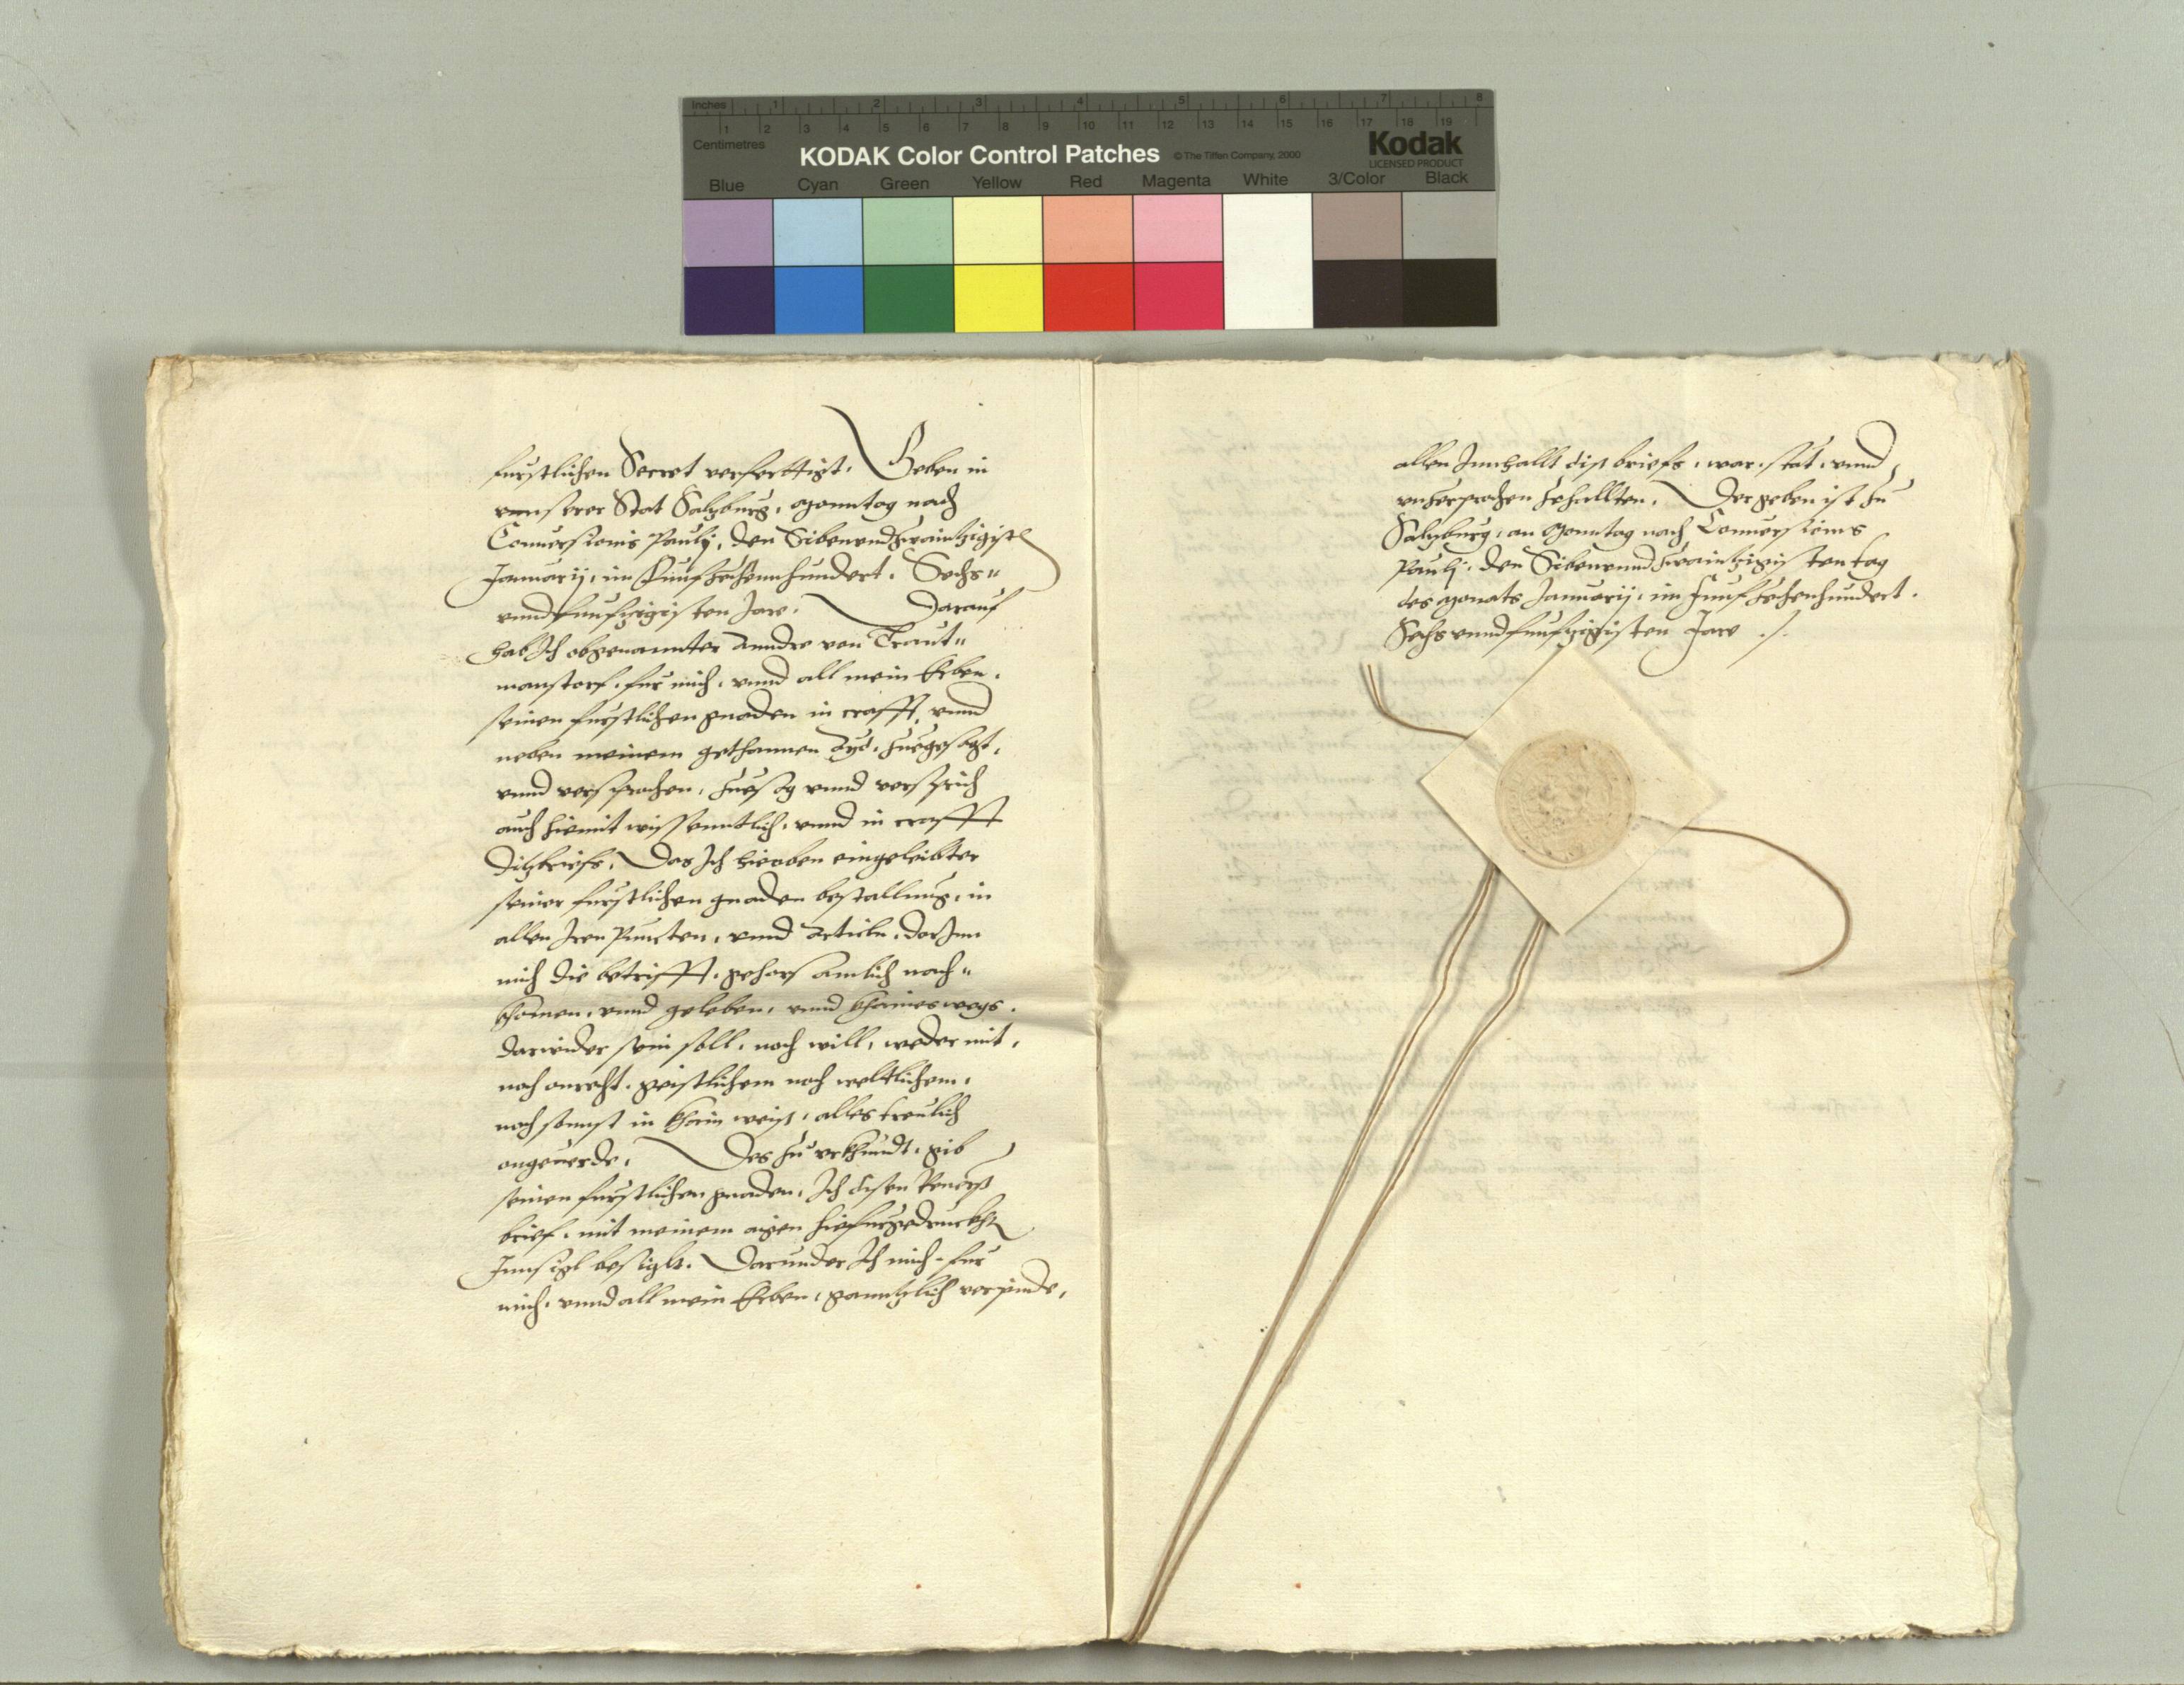 Inches 1 2 3 4 5 6 7 8
Centimetres 1 2 3 4 5 6 7 8 9 10 11 12 13 14 15 16 17 18 19
KODAK Color Control Patches © The Tiffen Company, 2000 Kodak
LICENSED PRODUCT
Blue Cyan Green Yellow Red Magenta White 3/Color Black
furstlichen Secret verferttigt. Geben in
vnnserer Stat Saltzburg, Monntag nach
Conuersionis Pauly, den Sibenundzwaintzigist
Januarij, im Funfzechennhundert. Sechs"
vnndfunfzigisten Jare. Darauf
hab Ich obgenannter Anndre von Traut"
manstorf, fur mich, vnnd all mein Erben,
seinen furstlichen gnaden in crafft, vnnd
neben meinem gethannen Ayd, zuegesagt,
vnnd versprochen, zuesag vnnd versprich
auch hiemit wissenntlich, vnnd in crafft
ditzbriefs, Das Ich hieoben eingeleibter
seiner furstlichen gnaden bestallung, in
allen Iren Puncten, vnnd Articln, dar Inn
mich die betrifft, gehorsamlich nach"
khomen, vnnd geleben, vnnd khaineswegs.
darwider sein soll, noch will, weder mit,
noch on recht, geistlichem noch weltlichem,
noch sonnst in khain weiß, alles treulich
ongeuerde. Des zu vrkhundt, gib
seinen furstlichen gnaden, Ich disen Reuerß
brief, mit meinem aigen hiefurgedruckht
Innsigl besiglt. Darunder Ich mich, fur
mich, vnnd all mein Erben, ganntzlich verpinde,
allen Innhallt diß briefs, war, stat, vnnd
vnzerprochen zehallten. Der geben ist zu
Saltzburg, an Monntag nach Conuersionis
Paulj, den Sibenunndzwaintzigisten tag
des Monats Januarij, im Funfzechenhundert.
Sechsvnndfunfzigisten Jare ./.